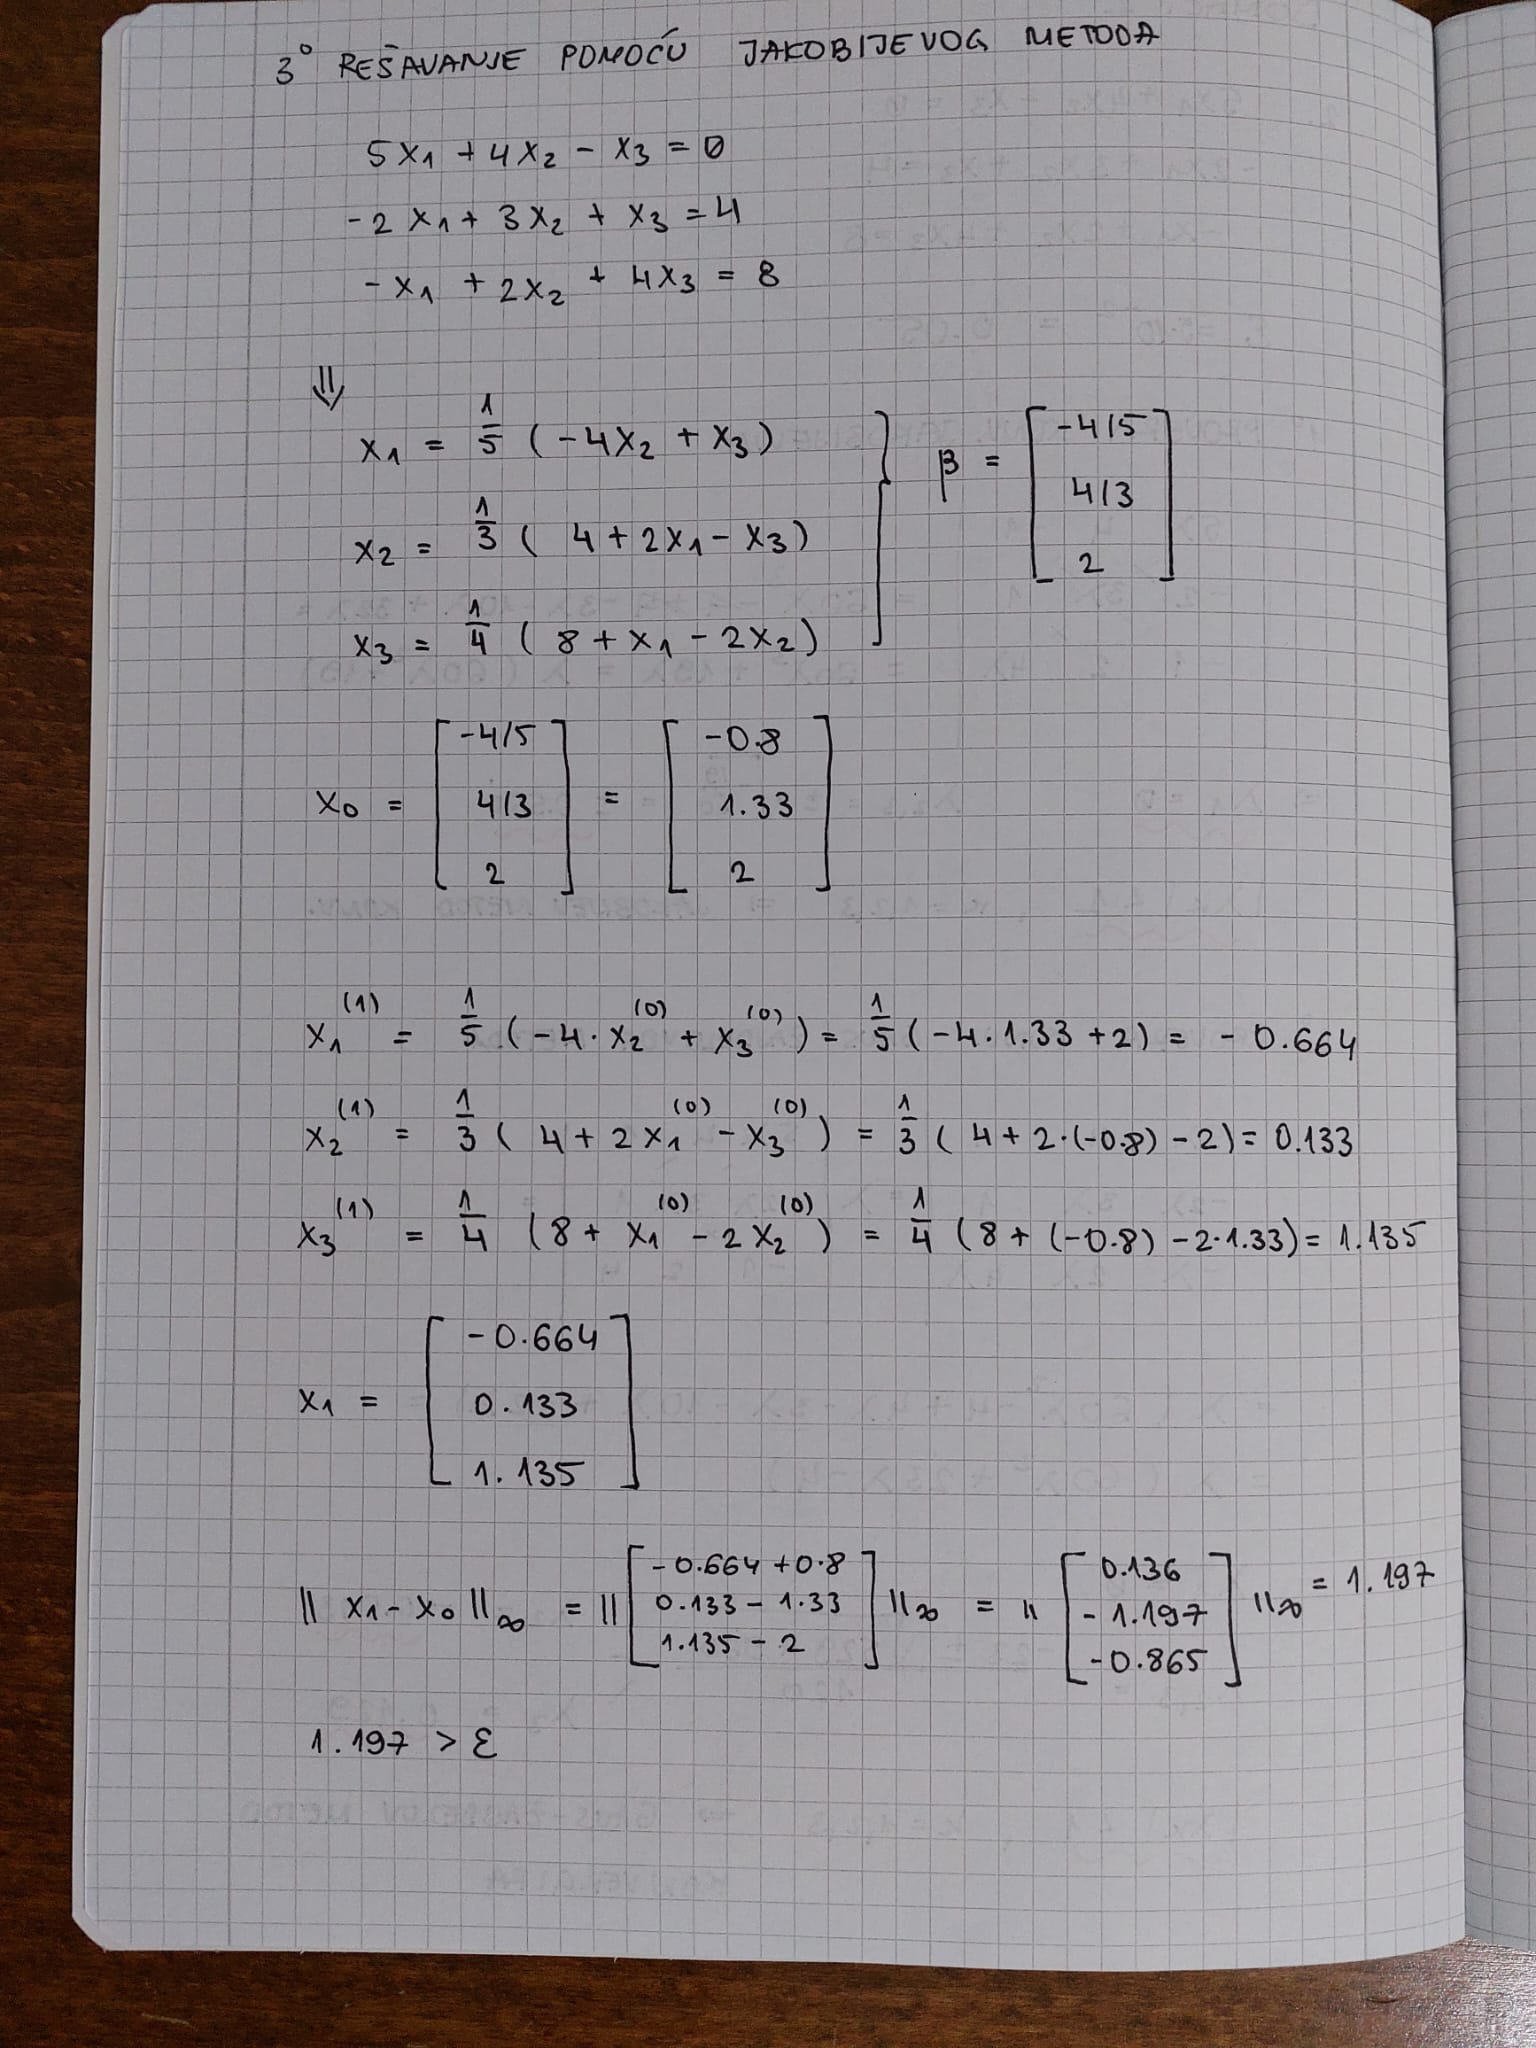 3° REŠAVANJE POMOĆU JAKOBIJEVOG METODA
5x₁ + 4x₂ - x₃ = 0
-2x₁ + 3x₂ + x₃ = 4
-x₁ + 2x₂ + 4x₃ = 8
⇓
x₁ = 1/5 (-4x₂ + x₃)
x₂ = 1/3 (4 + 2x₁ - x₃)
x₃ = 1/4 (8 + x₁ - 2x₂)
} β = [-4/5
4/3
2]
x₀ = [-4/5 4/3 2] = [-0.8 1.33 2]
x₁⁽¹⁾ = 1/5 (-4·x₂⁽⁰⁾ + x₃⁽⁰⁾) = 1/5 (-4·1.33 + 2) = -0.664
x₂⁽¹⁾ = 1/3 (4 + 2x₁⁽⁰⁾ - x₃⁽⁰⁾) = 1/3 (4 + 2·(-0.8) - 2) = 0.133
x₃⁽¹⁾ = 1/4 (8 + x₁⁽⁰⁾ - 2x₂⁽⁰⁾) = 1/4 (8 + (-0.8) - 2·1.33) = 1.135
x₁ = [-0.664
0.133
1.135]
|| x₁ - x₀ ||∞ = || [-0.664 + 0.8 0.133 - 1.33 1.135 - 2] ||∞ = || [0.136 -1.197 -0.865] ||∞ = 1.197
1.197 > ε